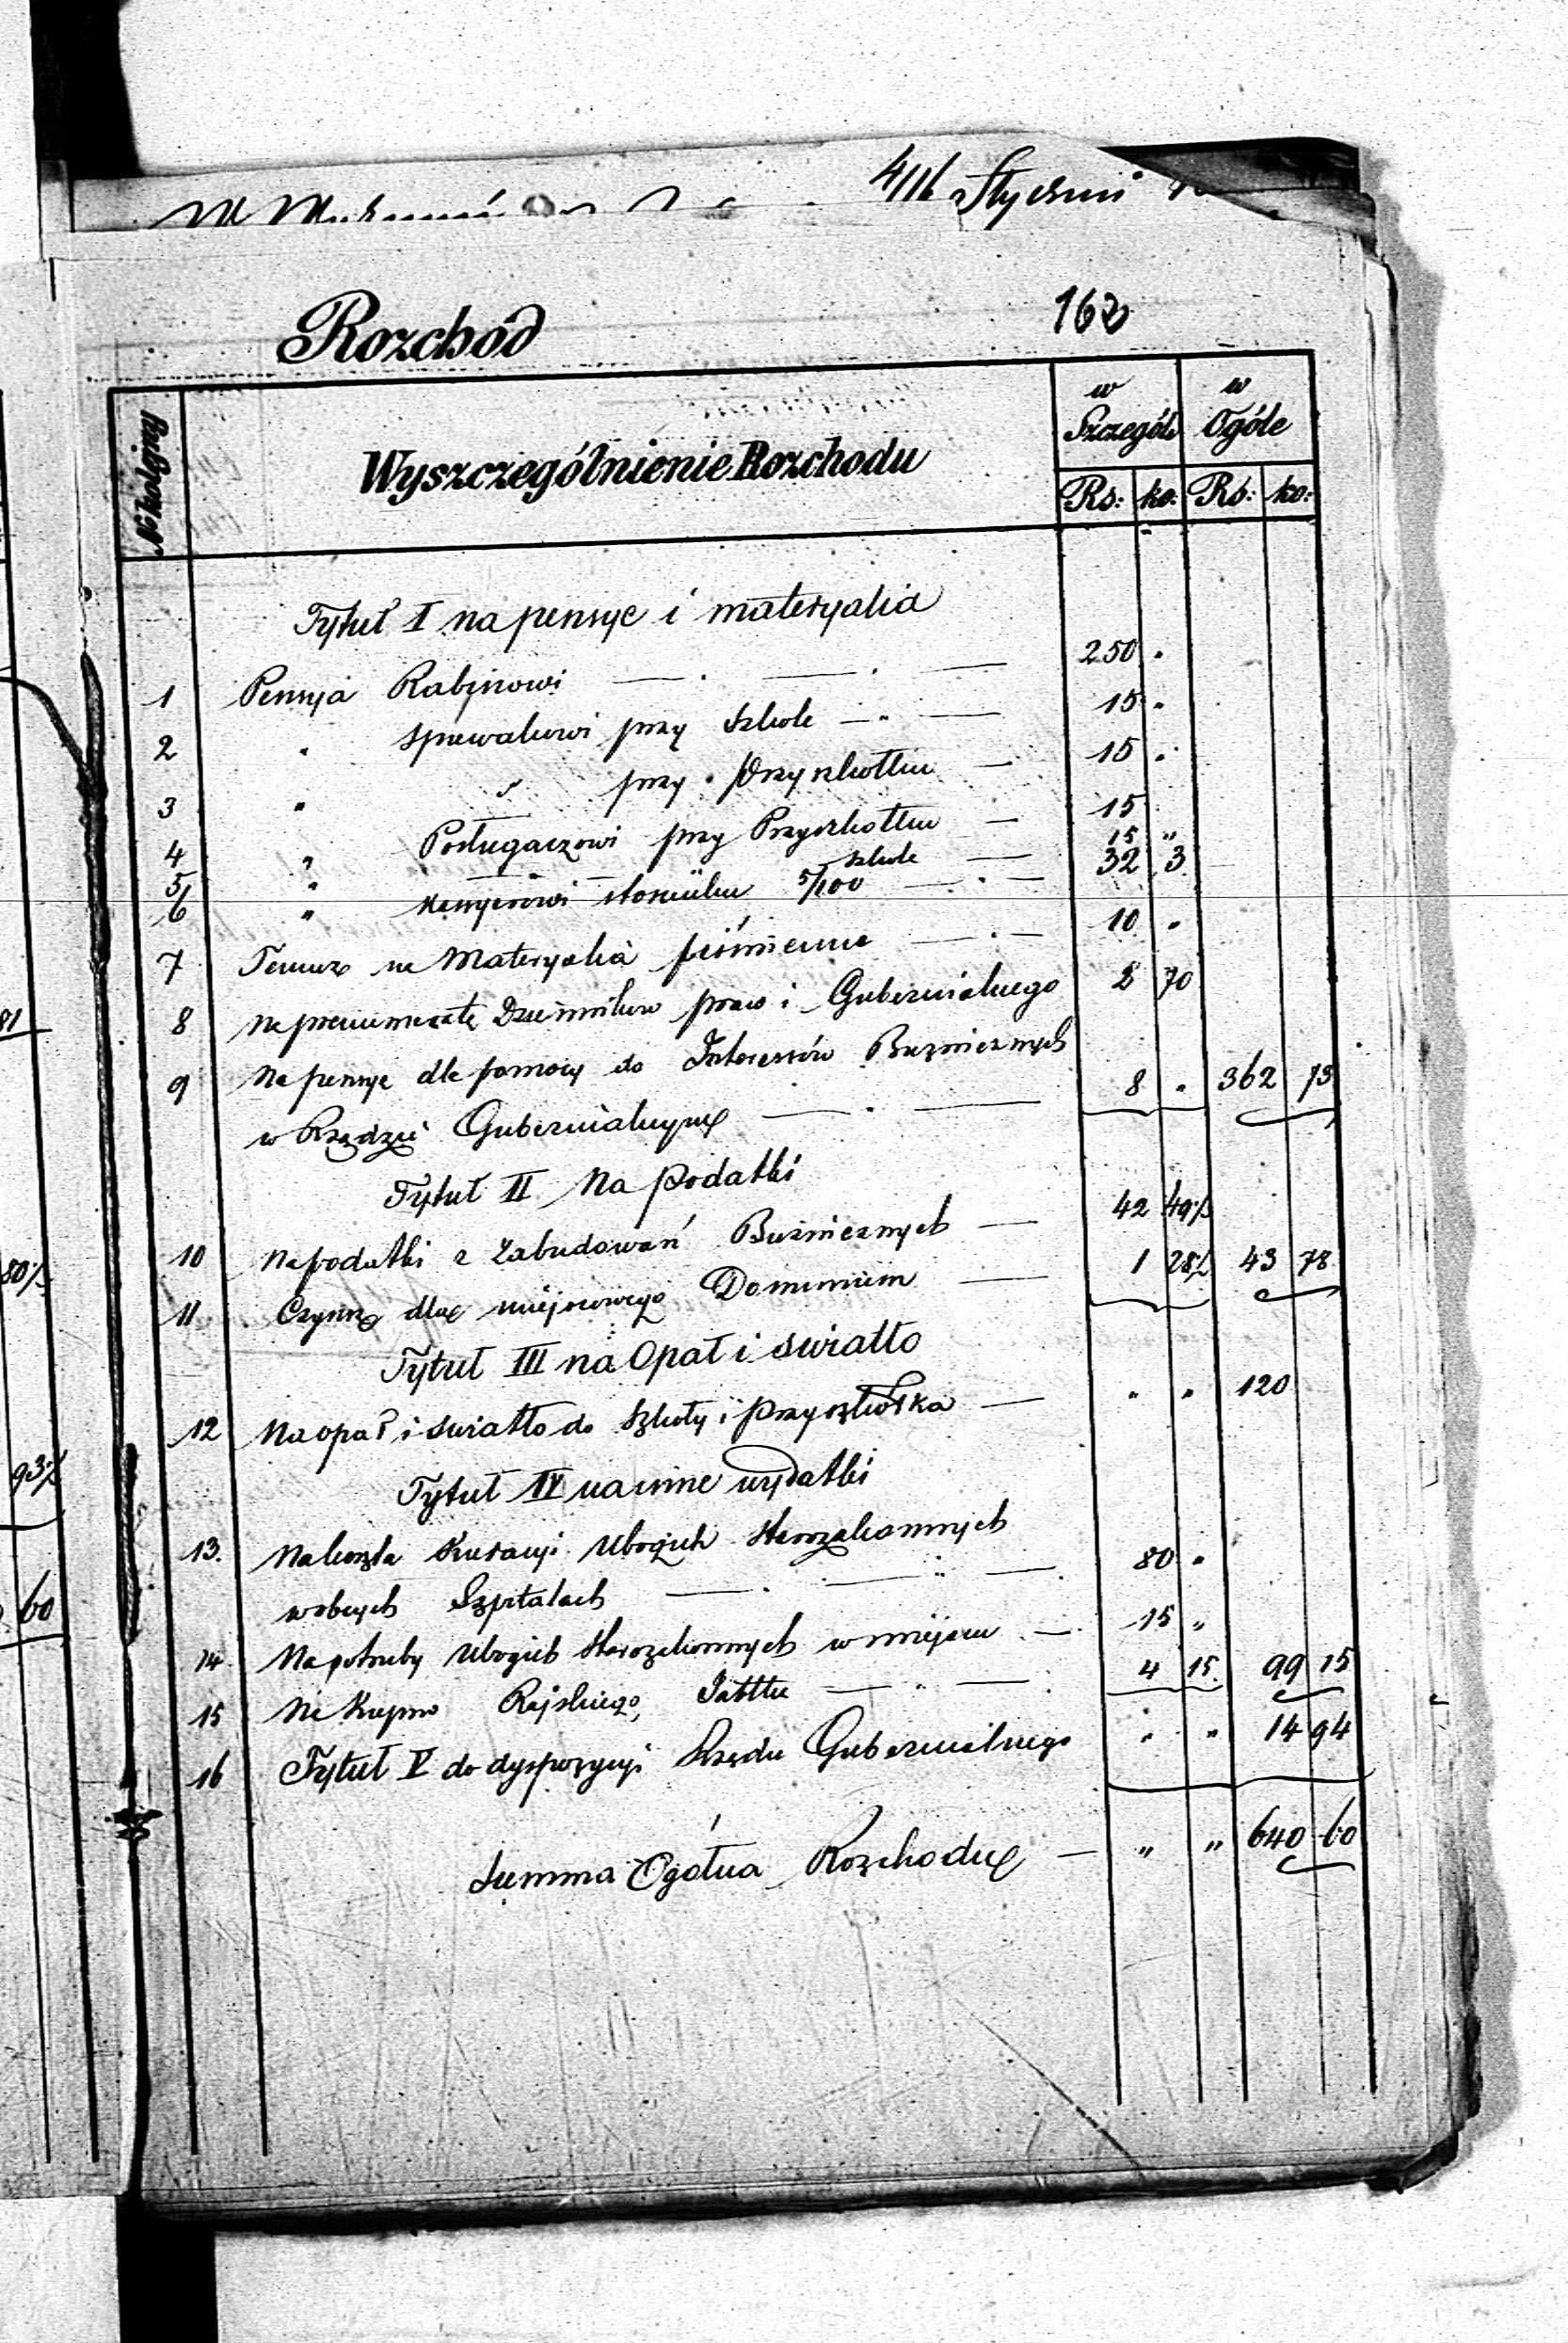 4/16 Stycznia
Rozchód
162
No kolejny
Wyszczególnienie Rozchodu
w Szczególe
w Ogóle
Rs: ko: Rs: ko:
Tytuł I na pensye i materyalia
1 Pensya Rabinowi — . — . — 250 "
2 " Spiewakowi przy Szkole — " — 15 "
3 " " przy Przyszkołku — 15 "
4 " Posługaczowi przy Przyszkołku — 15
5 " — — — szkole — 15 "
6 " Kassyerowi stosunku 5/100 — . — 32 3
7 Temuż na Materyalia piśmienne — . — 10 "
8 Na prenumeratę Dzienników praw i Gubernialnego 2 70
9 Na pensye dla pomocy do Interessów Bużnicznych
w Rządzie Gubernialnym — . — 8 " 362 73
Tytuł II Na podatki
10 Na podatki z Zabudowań Bużnicznych — 42 49½
11 Czynsz dla miejscowego Dominium — 1 28½ 43 78
Tytuł III na Opał i swiatło
12 Na opał i swiatło do Szkoły i Przyszkołka — " " 120
Tytuł IV na inne wydatki
13. Na koszta Kuracyi Ubogich Starozakonnych
w obcych Szpitalach — . — " — 80 "
14 Na potrzeby Ubogich Starozakonnych w miejscu — 15 "
15 Na Kupno Rajskiego Jabłka — " — 4 15. 99 15
16 Tytuł V do dyspozycyi Rządu Gubernialnego " " 14 94
Summa Ogółna Rozchodu — " " 640 60
81
80½
93½
60